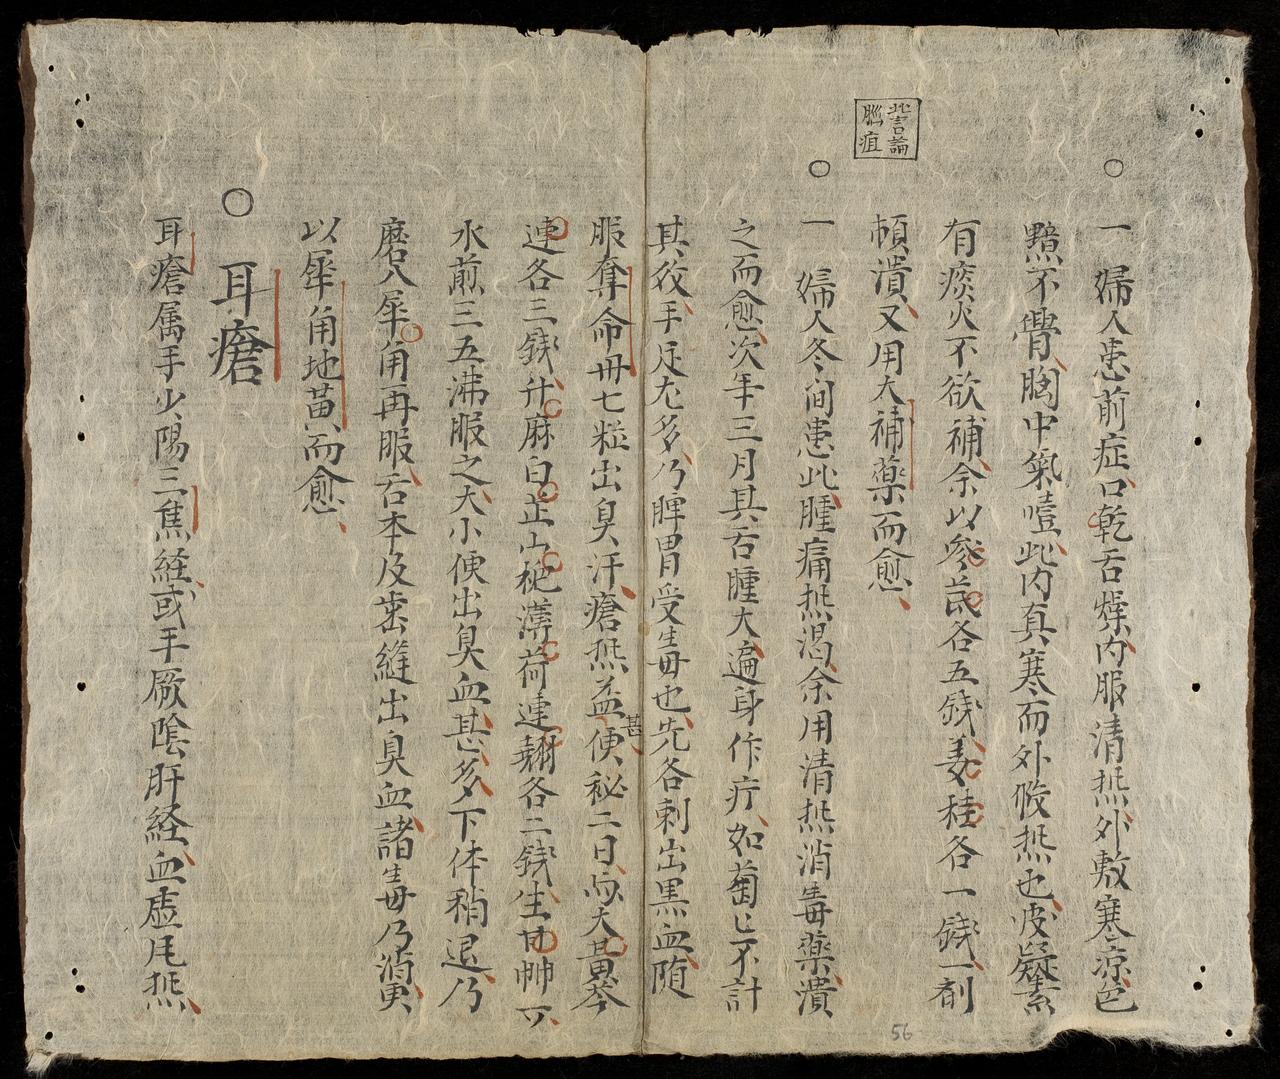 此言論
腦疽
○
一 婦人患前症口乾舌燥内服清热外敷寒凉色
黯不覺胸中氣噎此内真寒而外假热也彼疑素
有痰火不欲補余以參芪各五錢姜桂各一錢一剤
頓潰又用大補藥而愈
○
一 婦人冬间患此腫痛热渴余用清热消毒藥潰
之而愈次年三月其舌腫大遍身作疔如萄匕不計
其数手足尤多乃脾胃受毒也先各刺出黒血随
服奪命丹七粒出臭汗瘡热益甚便秘二日与大黄芩
連各三錢升麻白芷山栀薄荷連翹各二錢生甘艸一
水煎三五沸服之大小便出臭血甚多下体稍退乃
磨入犀角再服舌本及歯縫出臭血諸毒乃消更
以犀角地黄而愈
○
耳瘡
耳瘡属手少陽三焦経或手厥陰肝経血虚風热
56